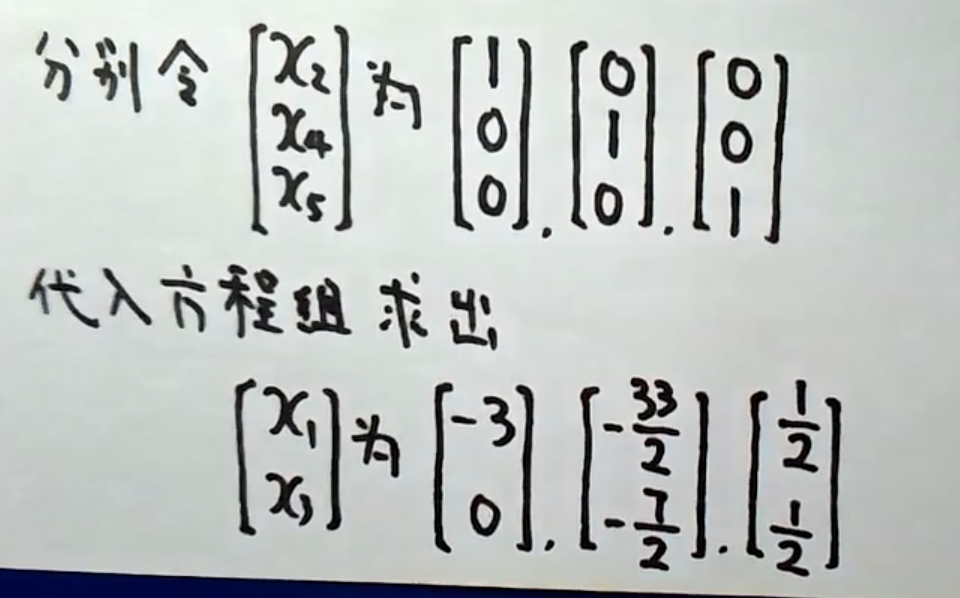 分别令 [x₂ x₄ x₅] 为 [1 0 0] . [0 1 0] . [0 0 1]
代入方程组 求出
[x₁ x₃] 为 [-3 0] . [-33/2 -7/2] . [1/2 1/2]